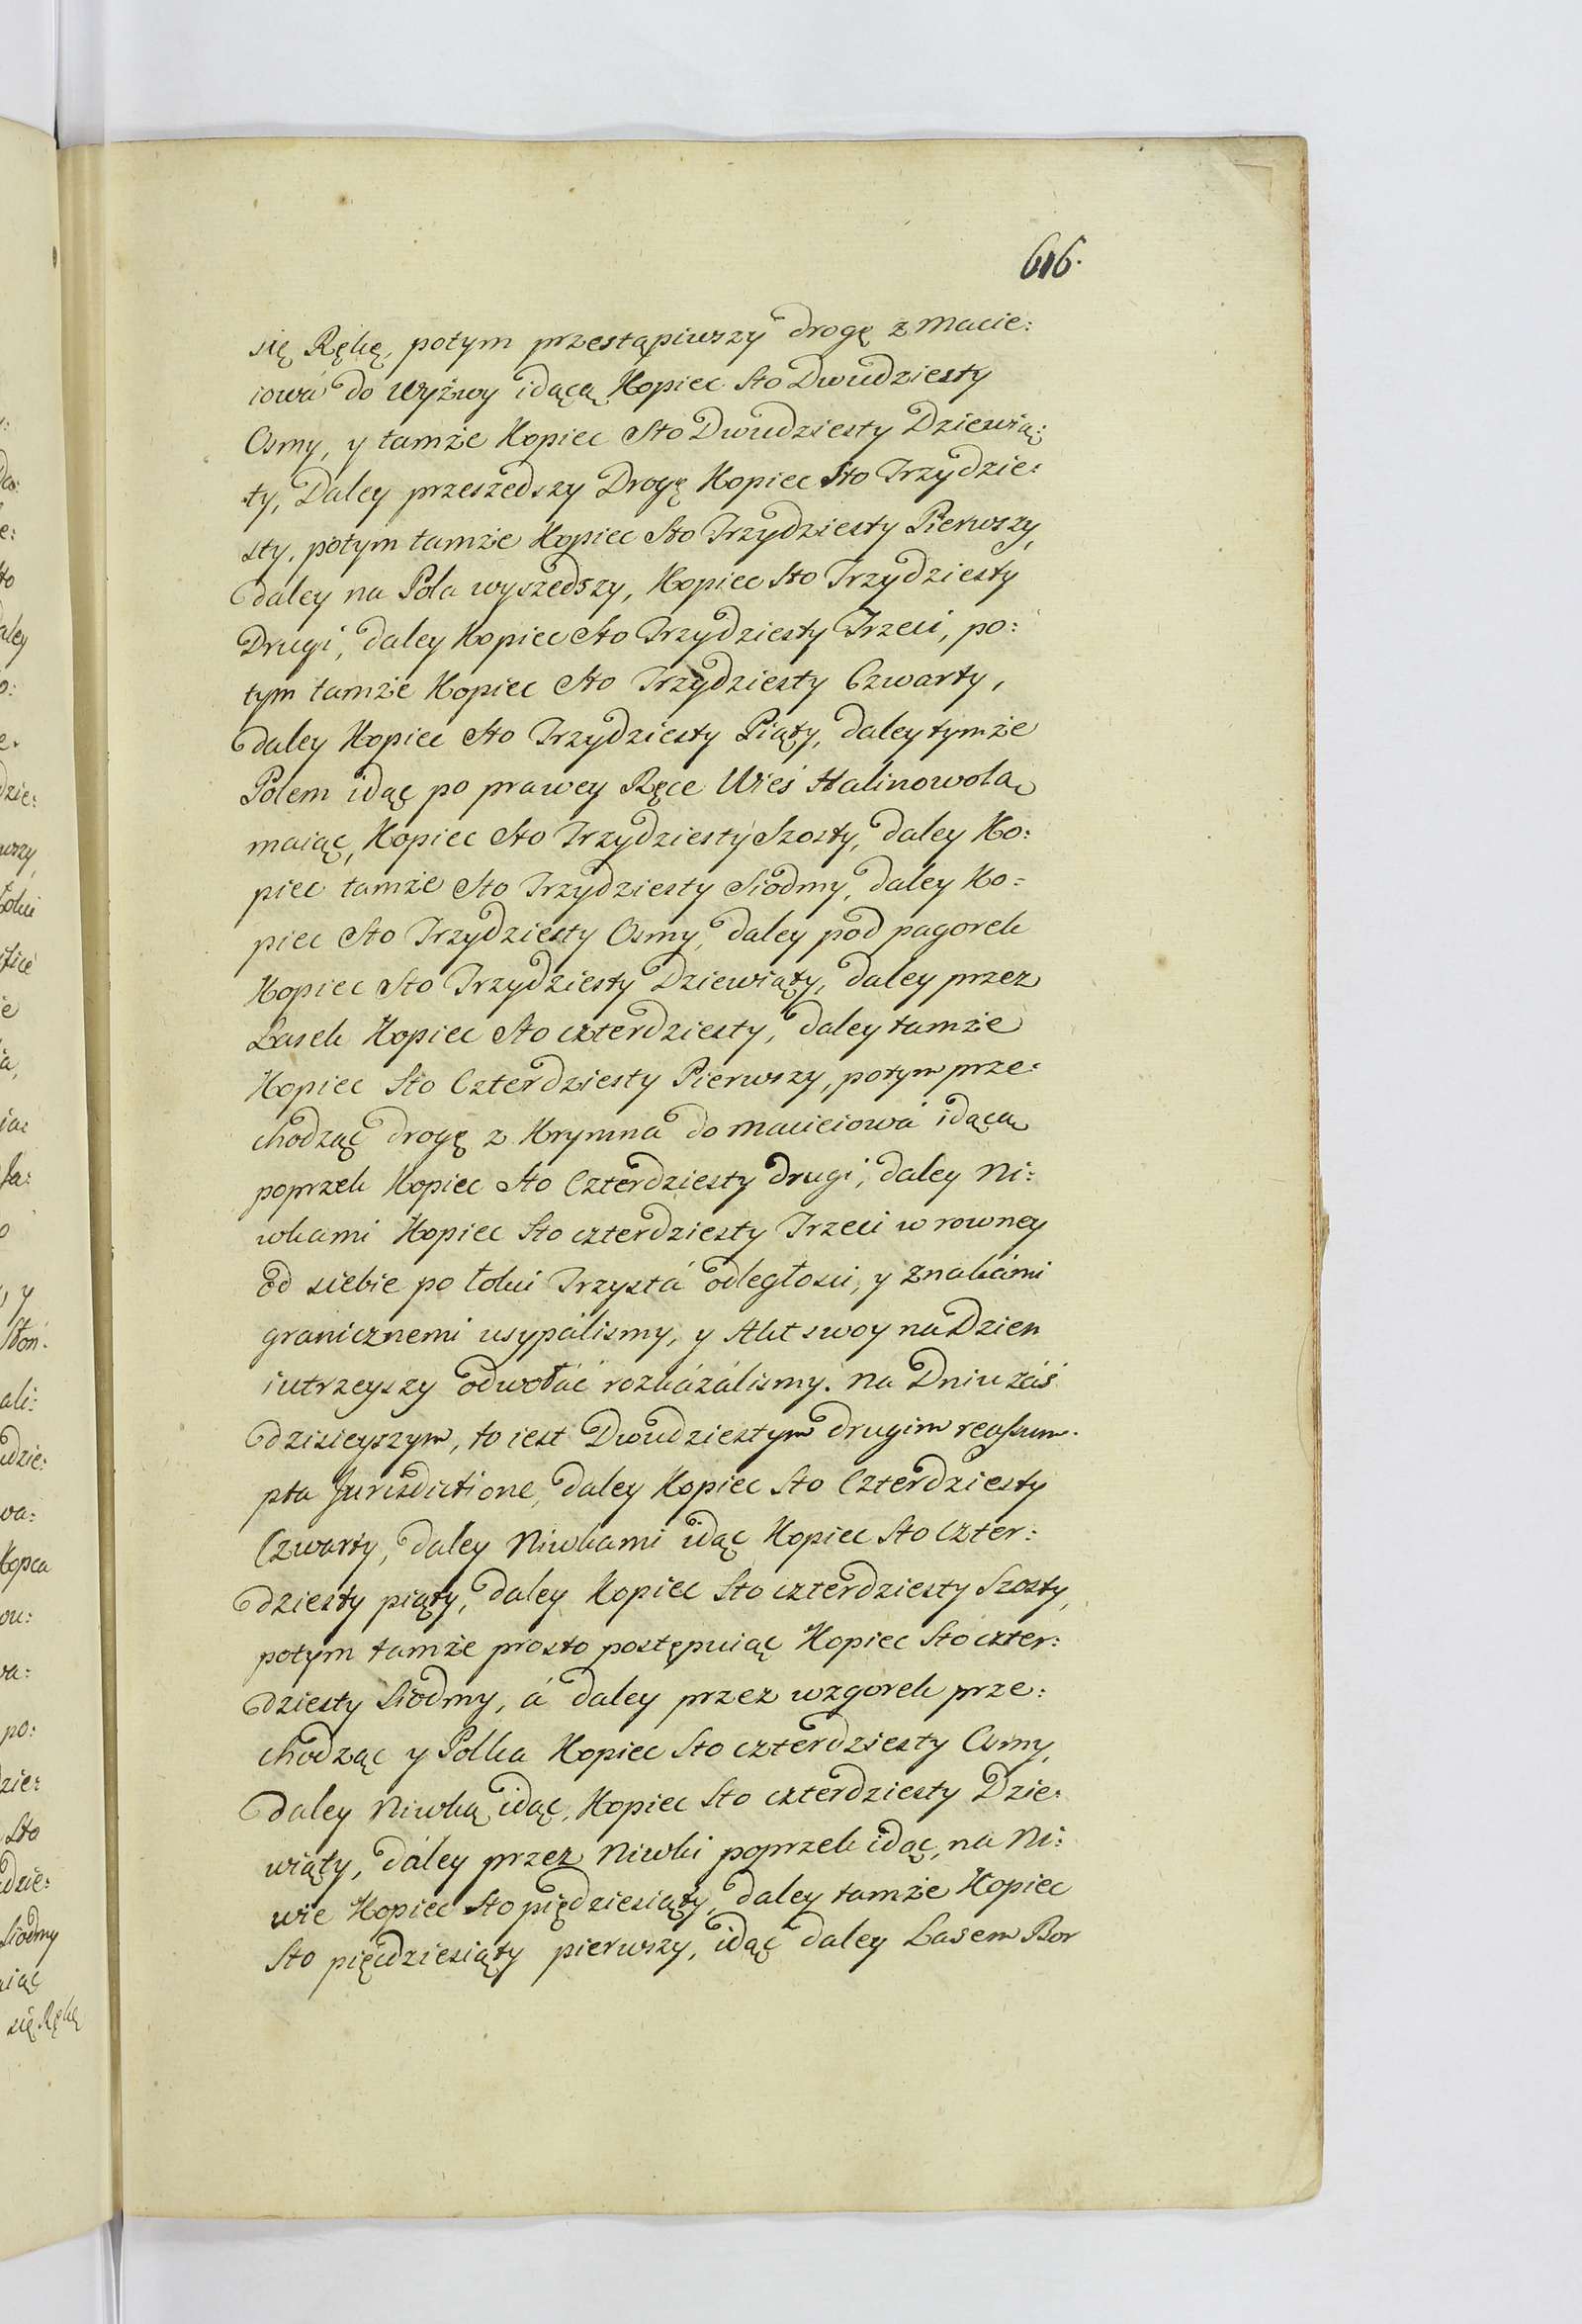 616.
się Rękę, potym przestąpiwszy drogę z Macie:
iowá do Wyżwy idącą Kopiec Sto Dwudziesty
Osmy, y tamże Kopiec Sto Dwudziesty Dziewią:
ty, Daley przeszedszy Drogę Kopiec Sto Trzydzie:
sty, potym tamże Kopiec Sto Trzydziesty Pierwszy,
daley na Pola wyszedszy, Kopiec Sto Trzydziesty
Drugi, daley Kopiec Sto Trzydziesty Trzeci, po:
tym tamże Kopiec Sto Trzydziesty Czwarty,
daley Kopiec Sto Trzydziesty Piąty, daley tymże
Polem idąc po prawey Ręce Wieś Kalinowolą
maiąc, Kopiec Sto Trzydziesty Szosty, daley Ko:
piec tamże Sto Trzydziesty Siodmy, daley Ko:
piec Sto Trzydziesty Osmy, daley pod pagorek
Kopiec Sto Trzydziesty Dziewiąty, daley przez
Lasek Kopiec Sto czterdziesty, daley tamże
Kopiec Sto Czterdziesty Pierwszy, potym prze:
chodząc drogę z Krymna do Macieiowá idącą
poprzek Kopiec Sto Czterdziesty drugi, daley Ni:
wkami Kopiec Sto czterdziesty Trzeci w rowney
od siebie po łokci Trzystá odległosci, y Znakámi
granicznemi usypálismy, y Akt swoy na Dzien
iutrzeyszy odwołáć rozkázálismy. Na Dniu záś
dzisieyszym, to iest Dwudziestym drugim reassum:
pta Jurisdictione, daley Kopiec Sto Czterdziesty
Czwarty, daley Niwkami idąc Kopiec Sto Czter:
dziesty piąty, daley Kopiec Sto czterdziesty Szosty,
potym tamże prosto postępuiąc Kopiec Sto czter:
dziesty Siodmy, á daley przez wzgorek prze:
chodząc y Polka Kopiec Sto czterdziesty Osmy,
daley Niwką idąc, Kopiec Sto czterdziesty Dzie:
wiąty, dáley przez Niwki poprzek idąc, na Ni:
wie Kopiec Sto piędziesiąty, daley tamże Kopiec
Sto pięćdziesiąty pierwszy, idąc daley Lasem Bor